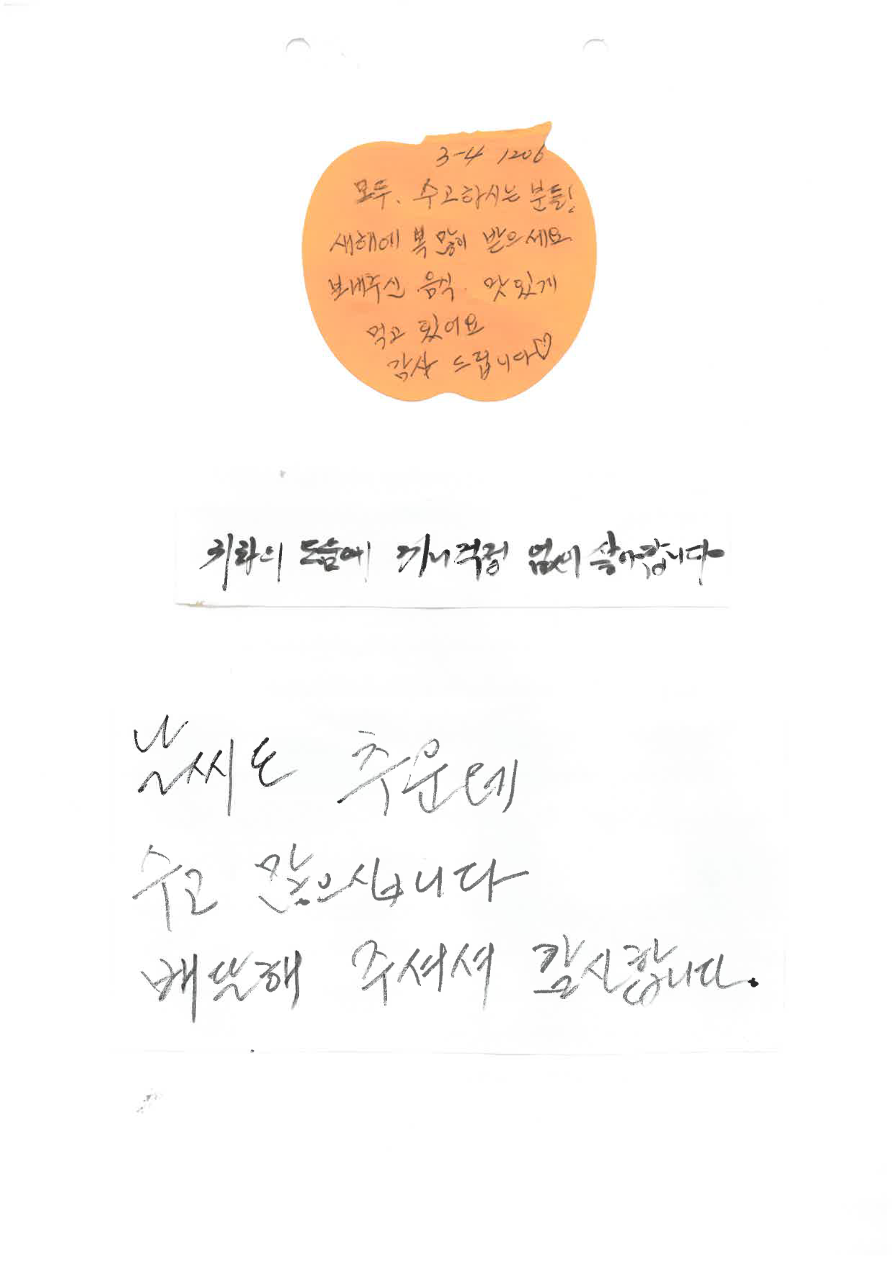 3-4 1206
모두. 수고하시는 분들!
새해에 복 많이 받으세요
보내주신 음식. 맛있게
먹고 있어요
감사 드립니다♡
귀하의 도움에 끼니걱정 없이 살아갑니다
날씨도 추운데
수고 많으십니다
배달해 주셔셔 감사합니다.